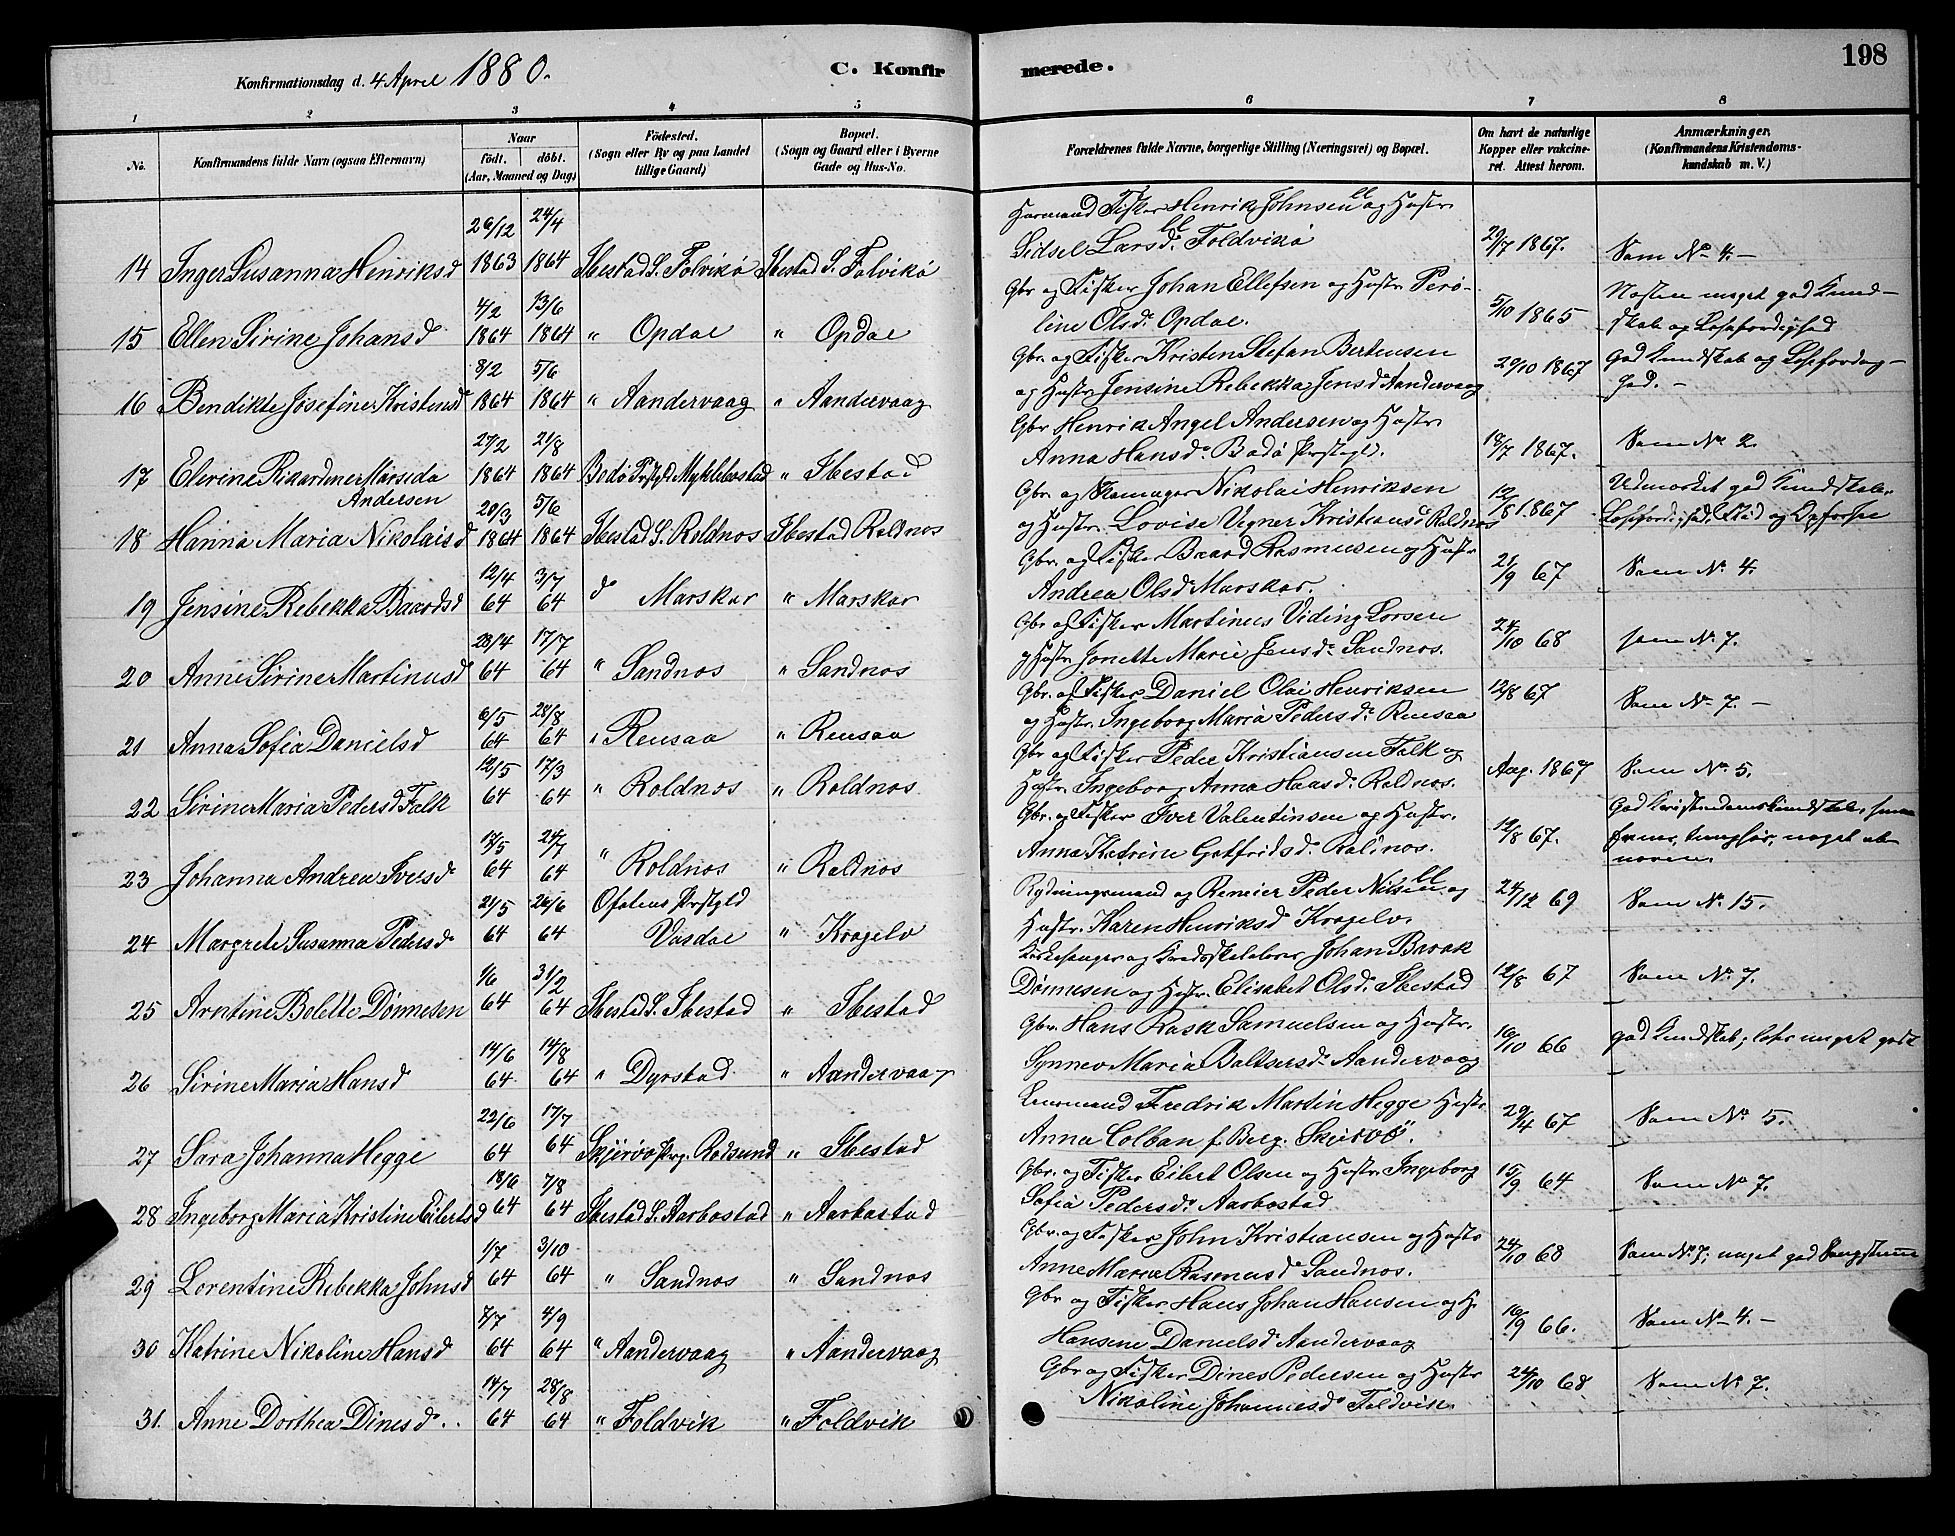 Konfirmationsdag d. 4 April 1880.
C. Konfirmerede.
198
1 2 3 4 5 6 7 8
No. Konfirmandens fulde Navn (ogsaa Efternavn)
Naar födt. döbt. (Aar, Maaned og Dag)
Födested. (Sogn eller By og paa Landet tillige Gaard)
Bopæl. (Sogn og Gaard eller i Byerne Gade og Hus-No.
Forældrenes fulde Navne, borgerlige Stilling (Næringsvei) og Bopæl.
Om havt de naturlige Kopper eller vakcineret. Attest herom.
Anmærkninger, (Konfirmandens Kristendomskundskab m. V.)
14 Inger Susanna Henriksd 26/12 1863 24/4 1864 Ibestad S. Folvikø Ibestad S. Folvikø Husmand Fisker Henrik Johnsen og Hustr. Sidsel Larsd. Foldvikø 29/7 1867. Som No 4. -
15 Ellen Sirine Johansd 4/2 1864 13/6 1864 " Opdal " Opdal Gbr og Fisker Johan Ellefsen og Hustr. Perøline Olsd. Opdal. 5/10 1865 Næsten meget god Kundskab og Læsefærdighed
16 Bendikte Josefine Kristensd 8/2 1864 5/6 1864 " Aandervaag " Aandervaag Gbr. og Fisker Kristen Stefan Bertensen og Hustr. Jensine Rebekka Jensd. Aandervaag 29/10 1867 God Kundskab og Læsefærdighed. -
17 Elerine Rikardine Marsida Andersen 27/2 1864 21/8 1864 Bodø Prstgd Myklebostad " Ibestad Gbr Henrik Angel Andersen og Hustr. Anna Hansd. Bodø Prstgld. 18/7 1867. Som No 2.
18 Hanna Maria Nikolaisd 20/3 1864 5/6 1864 Ibestad S. Roldnæs Ibestad Roldnæs Gbr. og Skomager Nikolai Henriksen og Hustr. Lovise Vegner Kristiansd Roldnæs 12/8 1867 Udmærket god Kundskab, Læsefærdighed, Flid og Opførsel
19 Jensine Rebekka Baardsd 12/4 64 3/7 64 do Marskar " Marskar Gbr. og Fisker Baard Rasmussen og Hustr Andrea Olsd. Marskar. 21/9 67 Som No 4.
20 Anne Sirine Martinusd 28/4 64 17/7 64 " Sandnæs " Sandnæs Gbr og Fisker Martinus Viding Larsen og Hustr Jonette Marie Jensd. Sandnæs. 24/10 68 som No 7.
21 Anna Sofia Danielsd 6/5 64 28/8 64 " Rensaa " Rensaa Gbr. og Fisker Daniel Olai Henriksen og Hustr. Ingeborg Maria Pedersd. Rensaa 12/8 67 Som No 7. -
22 Sirine Maria Pedersd Falk 12/5 64 17/3 64 " Roldnæs " Roldnæs Gbr og Fisker Peder Kristiansen Falk og Hustr. Ingeborg Anna Haasd. Roldnæs. Aug. 1867 Som No 5.
23 Johanna Andrea Iversd 17/5 64 24/7 64 " Roldnæs " Roldnæs Gbr. og Fisker Iver Valentinsen og Hustr. Anna Katrine Gotfridsd. Rolnæs. 12/8 67. God Kristendomskundskab,
24 Margrete Susanna Pedersd. 21/5 64 26/6 64 Ofotens Prstgld Vasdal " Krogelv Rydningsmand og Reneier Peder Nilsen og Hustr. Karen Henriksd Krogelv. 24/12 69 Som No 15.
25 Arntine Bolette Dønnesen 1/6 64 31/2 64 Ibestad S. Ibestad " Ibestad Kirkesanger og Kredsskolelærer Johan Barak Dønnesen og Hustr. Elisabet Olsd. Ibestad 12/8 67 Som No 7.
26 Sirine Maria Hansd 14/6 64 14/8 64 " Dyrstad " Aandervaag Gbr. Hans Rask Samuelsen og Hustr. Synnev Maria Baltsersd. Aandervaag 16/10 66 god Kundskab, læser meget godt
27 Sara Johanna Hegge 22/6 64 17/7 64 Skjervø Prg. Rodsund " Ibestad Lensmand Fredrik Martin Hegge Hustr. Anna Colban f. Berg. Skjervö. 29/4 67 Som No 5.
28 Ingeborg Maria Kristine Eilertsd 18/6 64 7/8 64 Ibestad S. Aarbostad " Aarbostad Gbr. og Fisker Eilert Olsen og Hustr. Ingeborg Sofia Pedersd. Aarbostad 15/9 64 Som No 7.
29 Lorentine Rebekka Johnsd 1/7 64 3/10 64 " Sandnæs " Sandnæs Gbr. og Fisker John Kristiansen og Hustr Anne Maria Rasmusd. Sandnæs. 24/10 68 Som No 7; meget god Sangstemme
30 Katrine Nikoline Hansd 7/7 64 4/9 64 " Aandervaag " Aandervaag Gbr og Fisker Hans Johan Hansen og H. Hansine Danielsd Aandervaag 16/9 66. Som No 4. -
31. Anne Dorthea Dinesd. 14/7 64 28/8 64 " Foldvik " Foldvik Gbr og Fisker Dines Pedersen og Hustr Nikoline Johannesd Foldvik. 24/10 68 Som No 7.